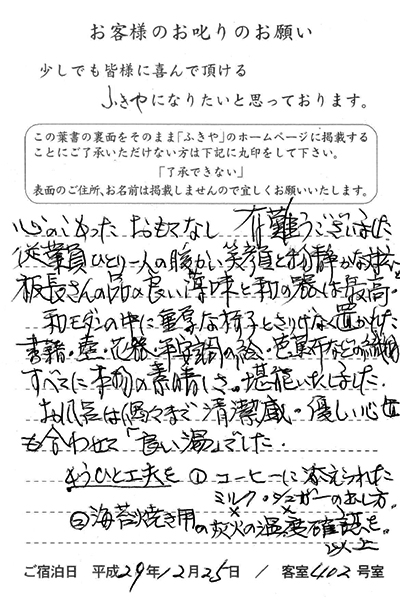 お客様のお叱りのお願い
少しでも皆様に喜んで頂ける
ふきやになりたいと思っております。
この葉書の裏面をそのまま「ふきや」のホームページに掲載する
ことにご了承いただけない方は下記に丸印をして下さい。
「了承できない」
表面のご住所、お名前は掲載しませんので宜しくお願いいたします。
心のこもった おもてなし 有難うございました
従業員ひとり一人の暖かい笑顔と物静かな
板長さんの品の良い薄味と和の器は最高。
和モダンの中に重厚な椅子とさりげなく置かれた
書籍・壺・花器・平安調の絵・
すべてに本物の素晴しさ。堪能いたしました。
お風呂は隅々まで清潔感。優しい心
も合わせて「良い湯」でした。
もうひと工夫を ① コーヒーに添えられた
ミルク・シュガーのお出し方。
② 海苔焼き用の炭火の温度確認を。
以上
ご宿泊日 平成29年12月25日 / 客室402号室